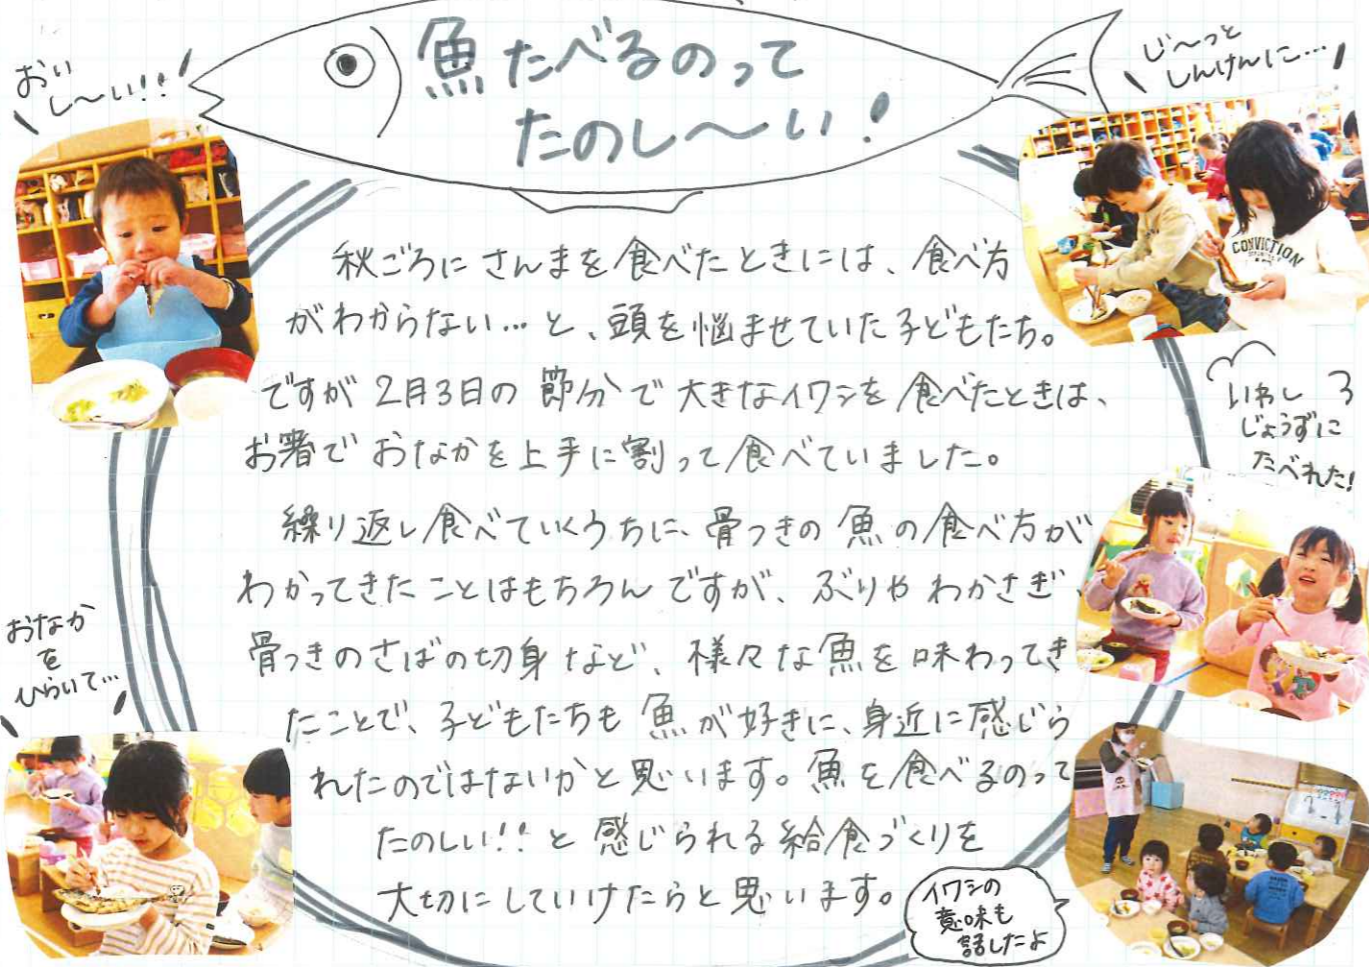 魚たべるのって
たのし〜い!
おい
し〜い!!
じ〜っと
しんけんに…
CONVICTION
秋ごろにさんまを食べたときには、食べ方
がわからない…と、頭を悩ませていた子どもたち。
ですが2月3日の節分で大きなイワシを食べたときは、
お箸でおなかを上手に割って食べていました。
繰り返し食べていくうちに、骨つきの魚の食べ方が
わかってきたことはもちろんですが、ぶりやわかさぎ、
骨つきのさばの切身など、様々な魚を味わってき
たことで、子どもたちも魚が好きに、身近に感じら
れたのではないかと思います。魚を食べるのって
たのしい!!と感じられる給食づくりを
大切にしていけたらと思います。
いわし
じょうずに
たべれた!
おなか
を
ひらいて…
イワシの
意味も
話したよ